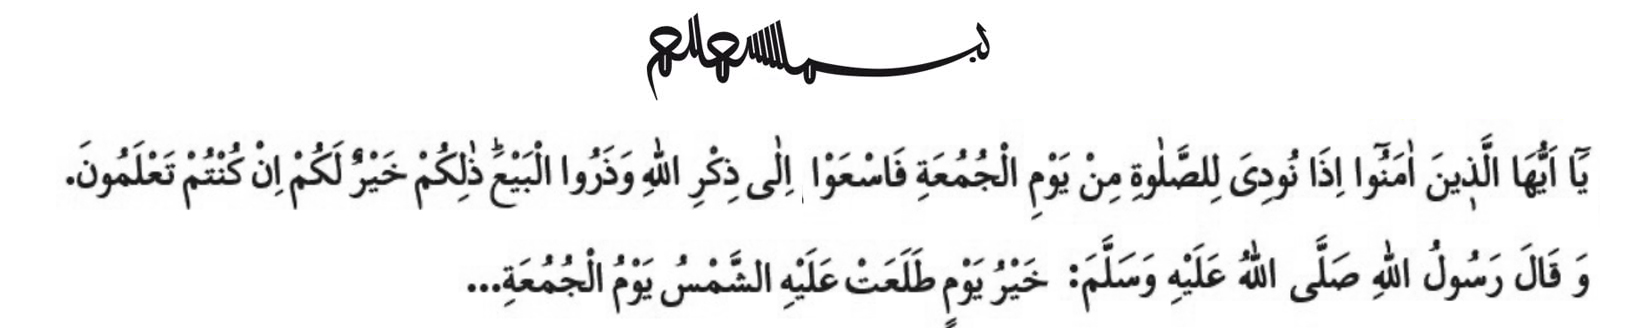 بسم الله الرحمن الرحيم
يَٓا اَيُّهَا الَّذ۪ينَ اٰمَنُٓوا اِذَا نُودِىَ لِلصَّلٰوةِ مِنْ يَوْمِ الْجُمُعَةِ فَاسْعَوْا اِلٰى ذِكْرِ اللّٰهِ وَذَرُوا الْبَيْعَۜ ذٰلِكُمْ خَيْرٌ لَكُمْ اِنْ كُنْتُمْ تَعْلَمُونَ.
وَ قَالَ رَسُولُ اللّٰهِ صَلَّى اللّٰهُ عَلَيْهِ وَسَلَّمَ: خَيْرُ يَوْمٍ طَلَعَتْ عَلَيْهِ الشَّمْسُ يَوْمُ الْجُمُعَةِ...